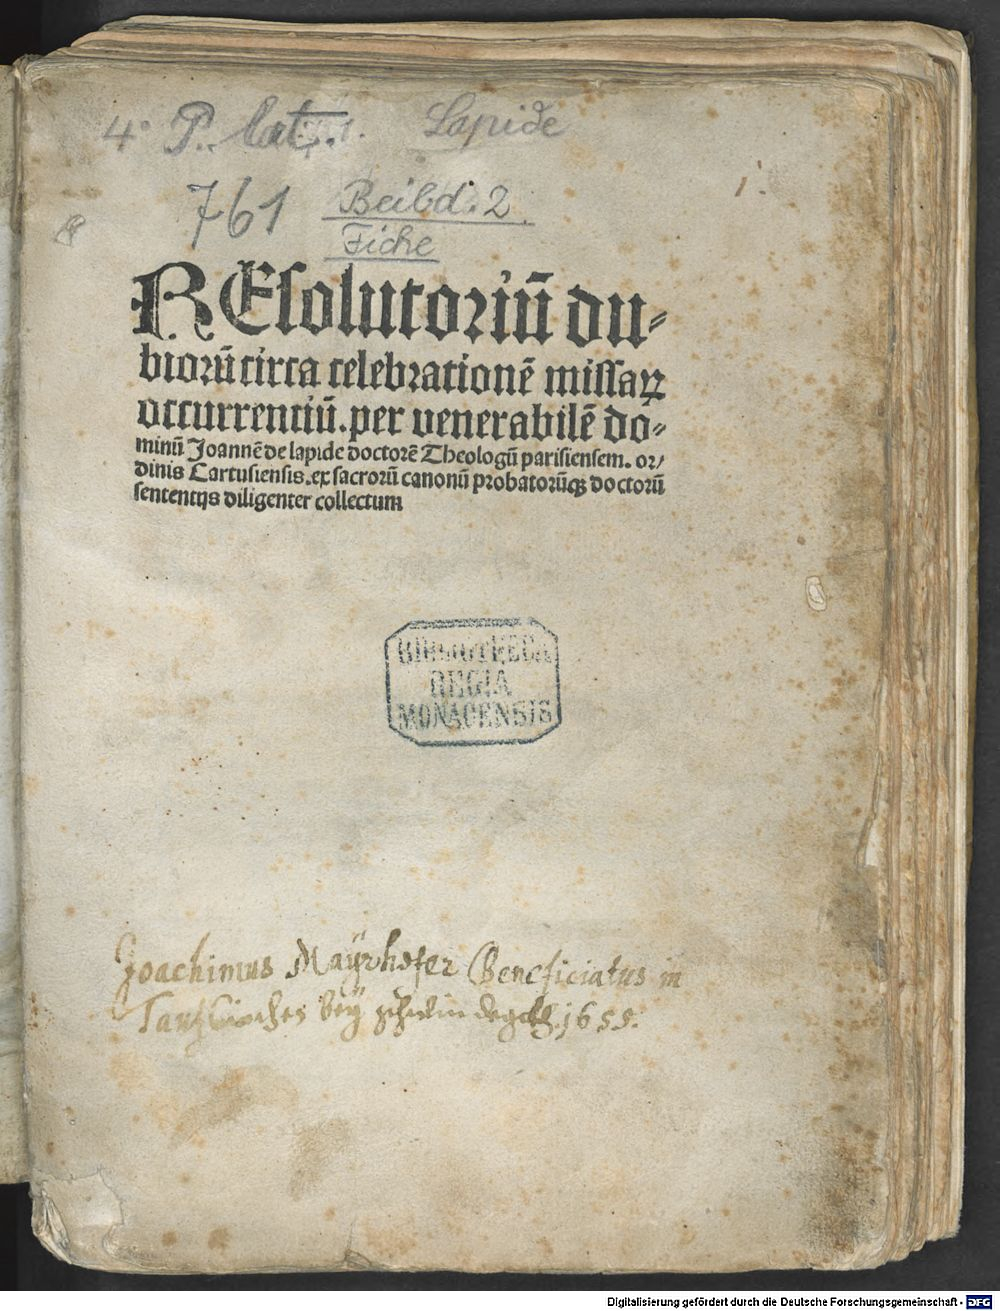 4° P. lat. Lapide
1.
761 Beibd. 2.
Fiche
REsolutoriũ du⸗
biorũ circa celebrationẽ missaꝝ
occurrentiũ. per venerabilẽ do⸗
minũ Joannẽ de lapide doctorẽ Theologũ parisiensem. or/
dinis Cartusiensis. ex sacrorũ canonũ probatorũqꝫ doctorũ
sententijs diligenter collectum
BIBLIOTHECA
REGIA
MONACENSIS
Joachimus Mayrhofer Beneficiatus in
beÿ 1655.
Digitalisierung gefördert durch die Deutsche Forschungsgemeinschaft - DFG